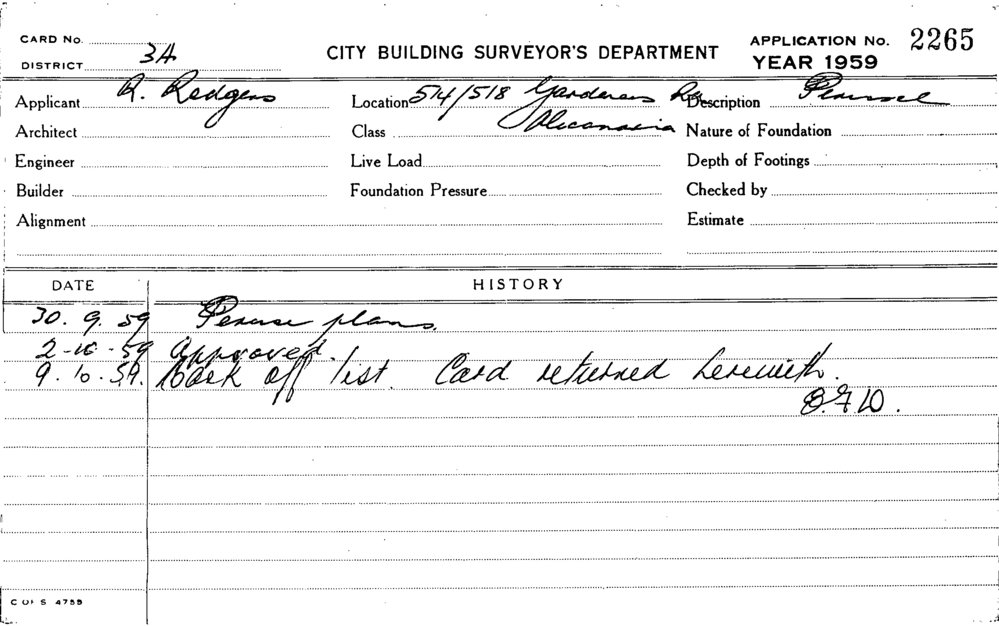 CARD No.
DISTRICT 3A
CITY BUILDING SURVEYOR'S DEPARTMENT
APPLICATION No. 2265
YEAR 1959
Applicant R. Rodgers
Location 514/518 Gardeners Rd
Alexandria
Description Perusal
Architect
Class
Nature of Foundation
Engineer
Live Load
Depth of Footings
Builder
Foundation Pressure
Checked by
Alignment
Estimate
DATE HISTORY
30. 9. 59 Peruse plans.
2-10-59 Approved.
9. 10. 59. Book off list. Card returned herewith.